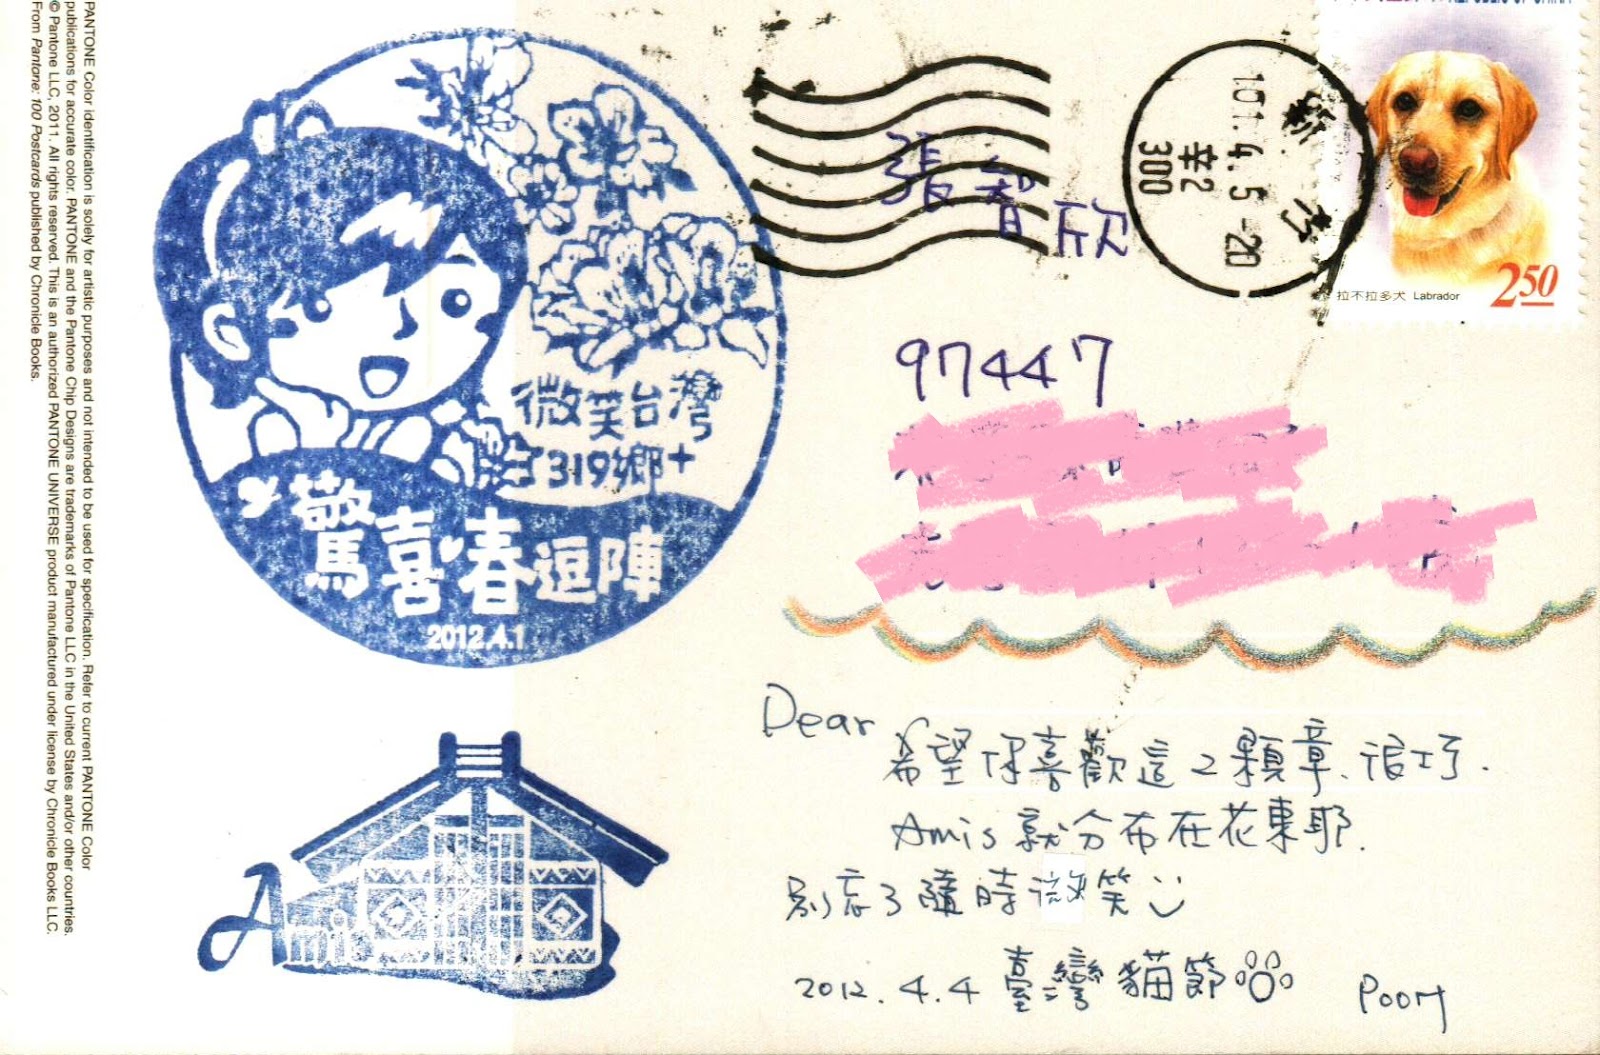 PANTONE Color identification is solely for artistic purposes and not intended to be used for specification. Refer to current PANTONE Color
publications for accurate color. PANTONE and the Pantone Chip Designs are trademarks of Pantone LLC in the United States and/or other countries.
© Pantone LLC, 2011. All rights reserved. This is an authorized PANTONE UNIVERSE product manufactured under license by Chronicle Books LLC.
From Pantone: 100 Postcards published by Chronicle Books.
微笑台灣
319鄉+
驚喜·春逗陣
2012.4.1
Amis
新竹
101.4.5-20
辛2
300
拉不拉多犬 Labrador
2.50
張智欣
97447
Dear
希望你喜歡這2顆章、很巧.
Amis 就分布在花東耶.
別忘了隨時微笑
2012.4.4 臺灣貓節